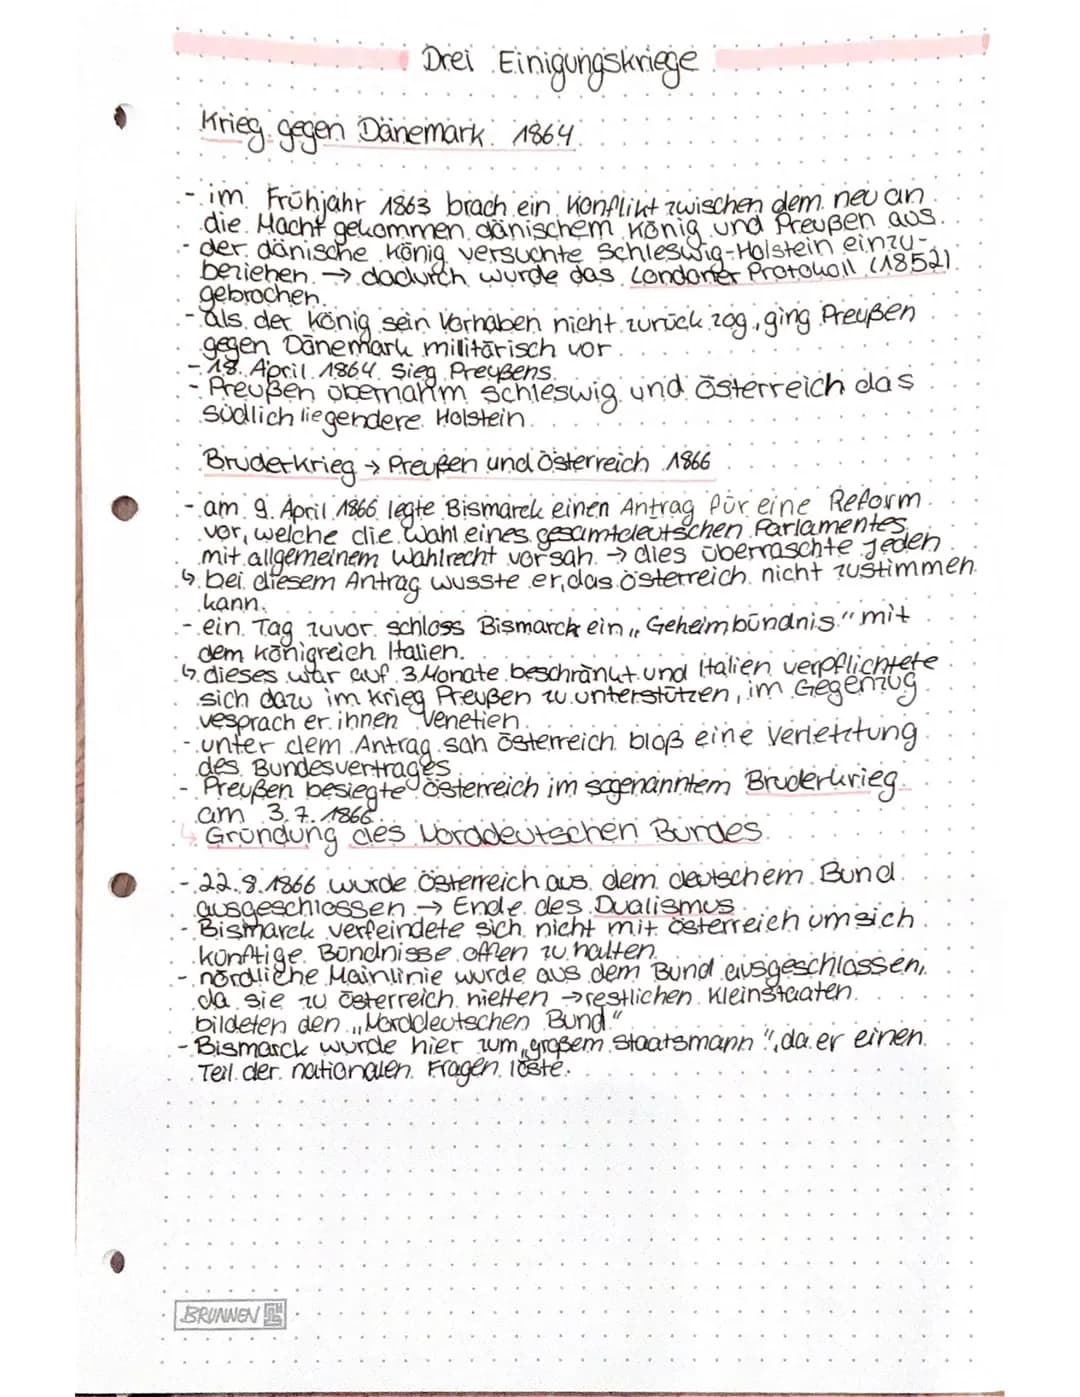 Drei Einigungskriege
Krieg gegen Dänemark 1864
- im Frühjahr 1863 brach ein Konflikt zwischen dem neu an
die Macht gekommen dänischem König und Preußen aus.
- der dänische König versuchte Schleswig-Holstein einzu-
beziehen → dadurch wurde das Londoner Protokoll (1852)
gebrochen.
- als der König sein Vorhaben nicht zurück zog, ging Preußen
gegen Dänemark militärisch vor.
- 18. April 1864 Sieg Preußens.
- Preußen übernahm Schleswig und Österreich das
südlich liegendere Holstein.
Bruderkrieg → Preußen und Österreich 1866
- am 9. April 1866 legte Bismarck einen Antrag für eine Reform
vor, welche die Wahl eines gesamtdeutschen Parlamentes
mit allgemeinem Wahlrecht vorsah → dies überraschte Jeden
↳ bei diesem Antrag wusste er, das Österreich nicht zustimmen
kann.
- ein Tag zuvor schloss Bismarck ein „Geheimbündnis" mit
dem Königreich Italien.
↳ dieses war auf 3 Monate beschränkt und Italien verpflichtete
sich dazu im Krieg Preußen zu unterstützen, im Gegenzug
vesprach er ihnen Venetien.
- unter dem Antrag sah Österreich bloß eine Verletztung
des Bundesvertrages
- Preußen besiegte Österreich im sogenanntem Bruderkrieg
am 3.7.1866.
↳ Gründung des Norddeutschen Bundes.
- 22.8.1866 wurde Österreich aus dem deutschem Bund
ausgeschlossen → Ende des Dualismus
- Bismarck verfeindete sich nicht mit Österreich um sich
künftige Bündnisse offen zu halten.
- nördliche Mainlinie wurde aus dem Bund ausgeschlossen,
da sie zu Österreich hielten → restlichen Kleinstaaten
bildeten den „Norddeutschen Bund"
- Bismarck wurde hier zum „großem Staatsmann", da er einen
Teil der nationalen Fragen löste.
BRUNNEN